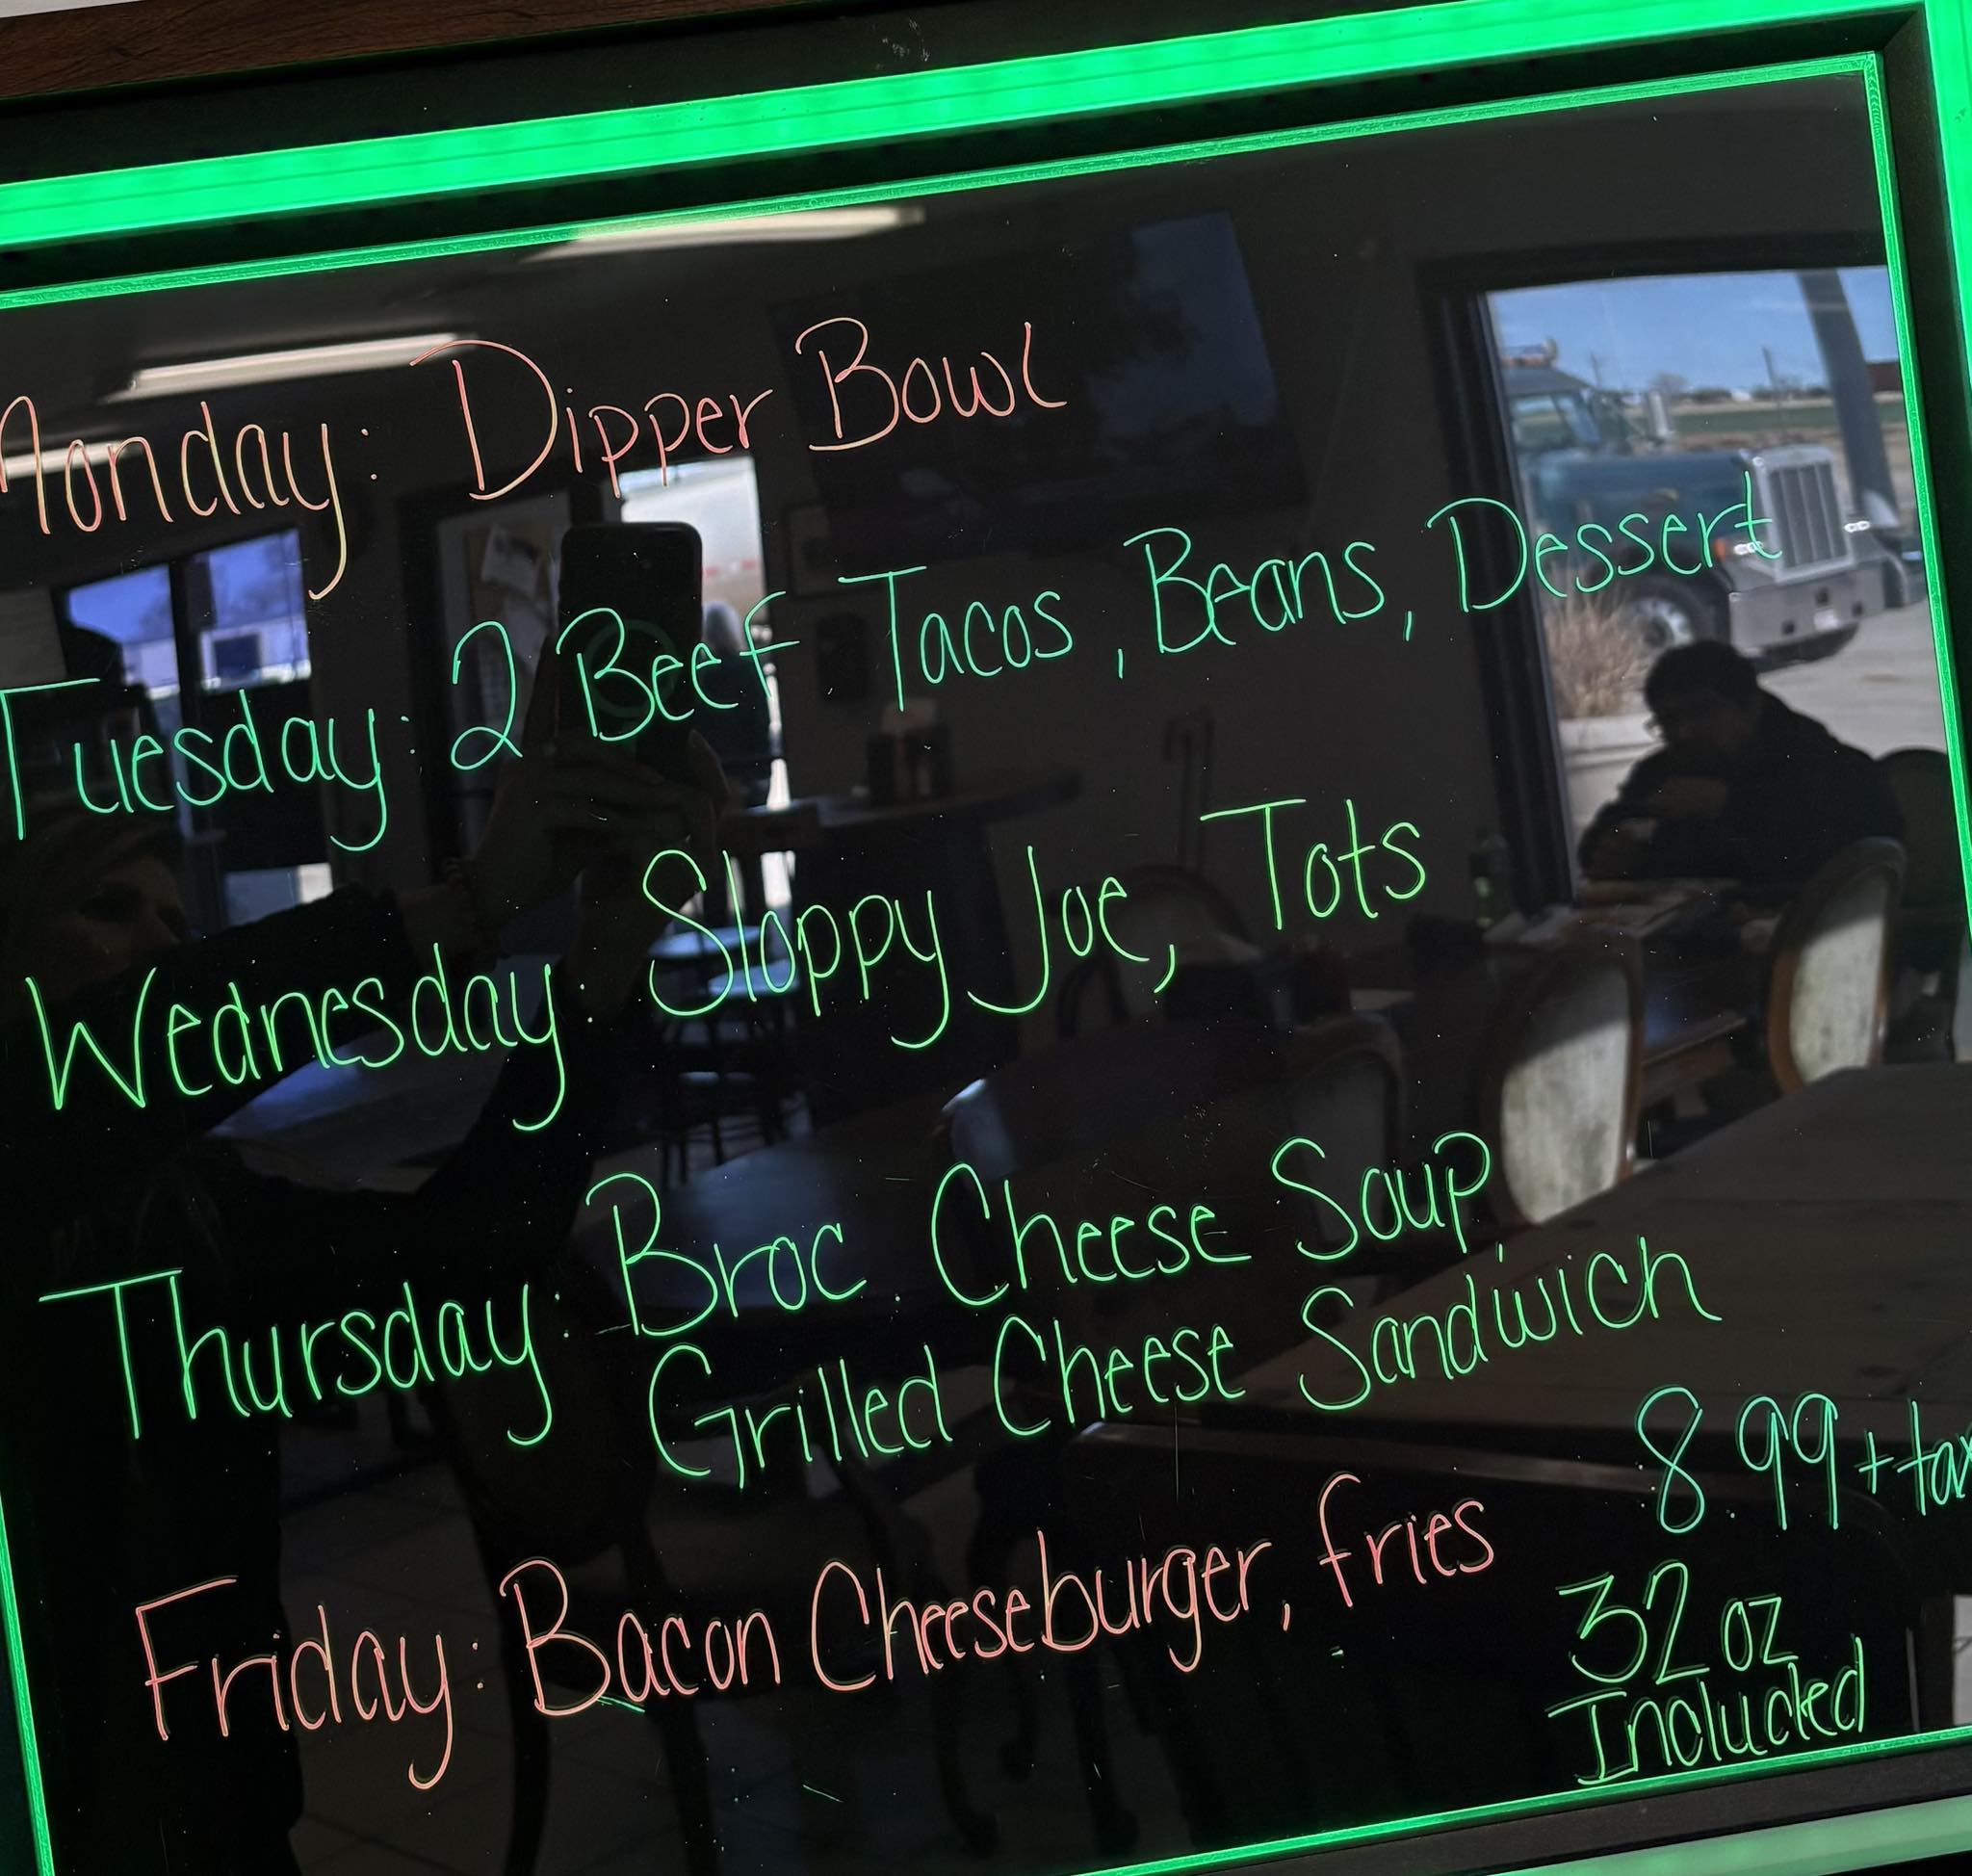 Monday: Dipper Bowl
Tuesday: 2 Beef Tacos, Beans, Dessert
Wednesday: Sloppy Joe, Tots
Thursday: Broc. Cheese Soup
Grilled Cheese Sandwich
8.99 + tax
Friday: Bacon Cheeseburger, fries
32 oz
Included